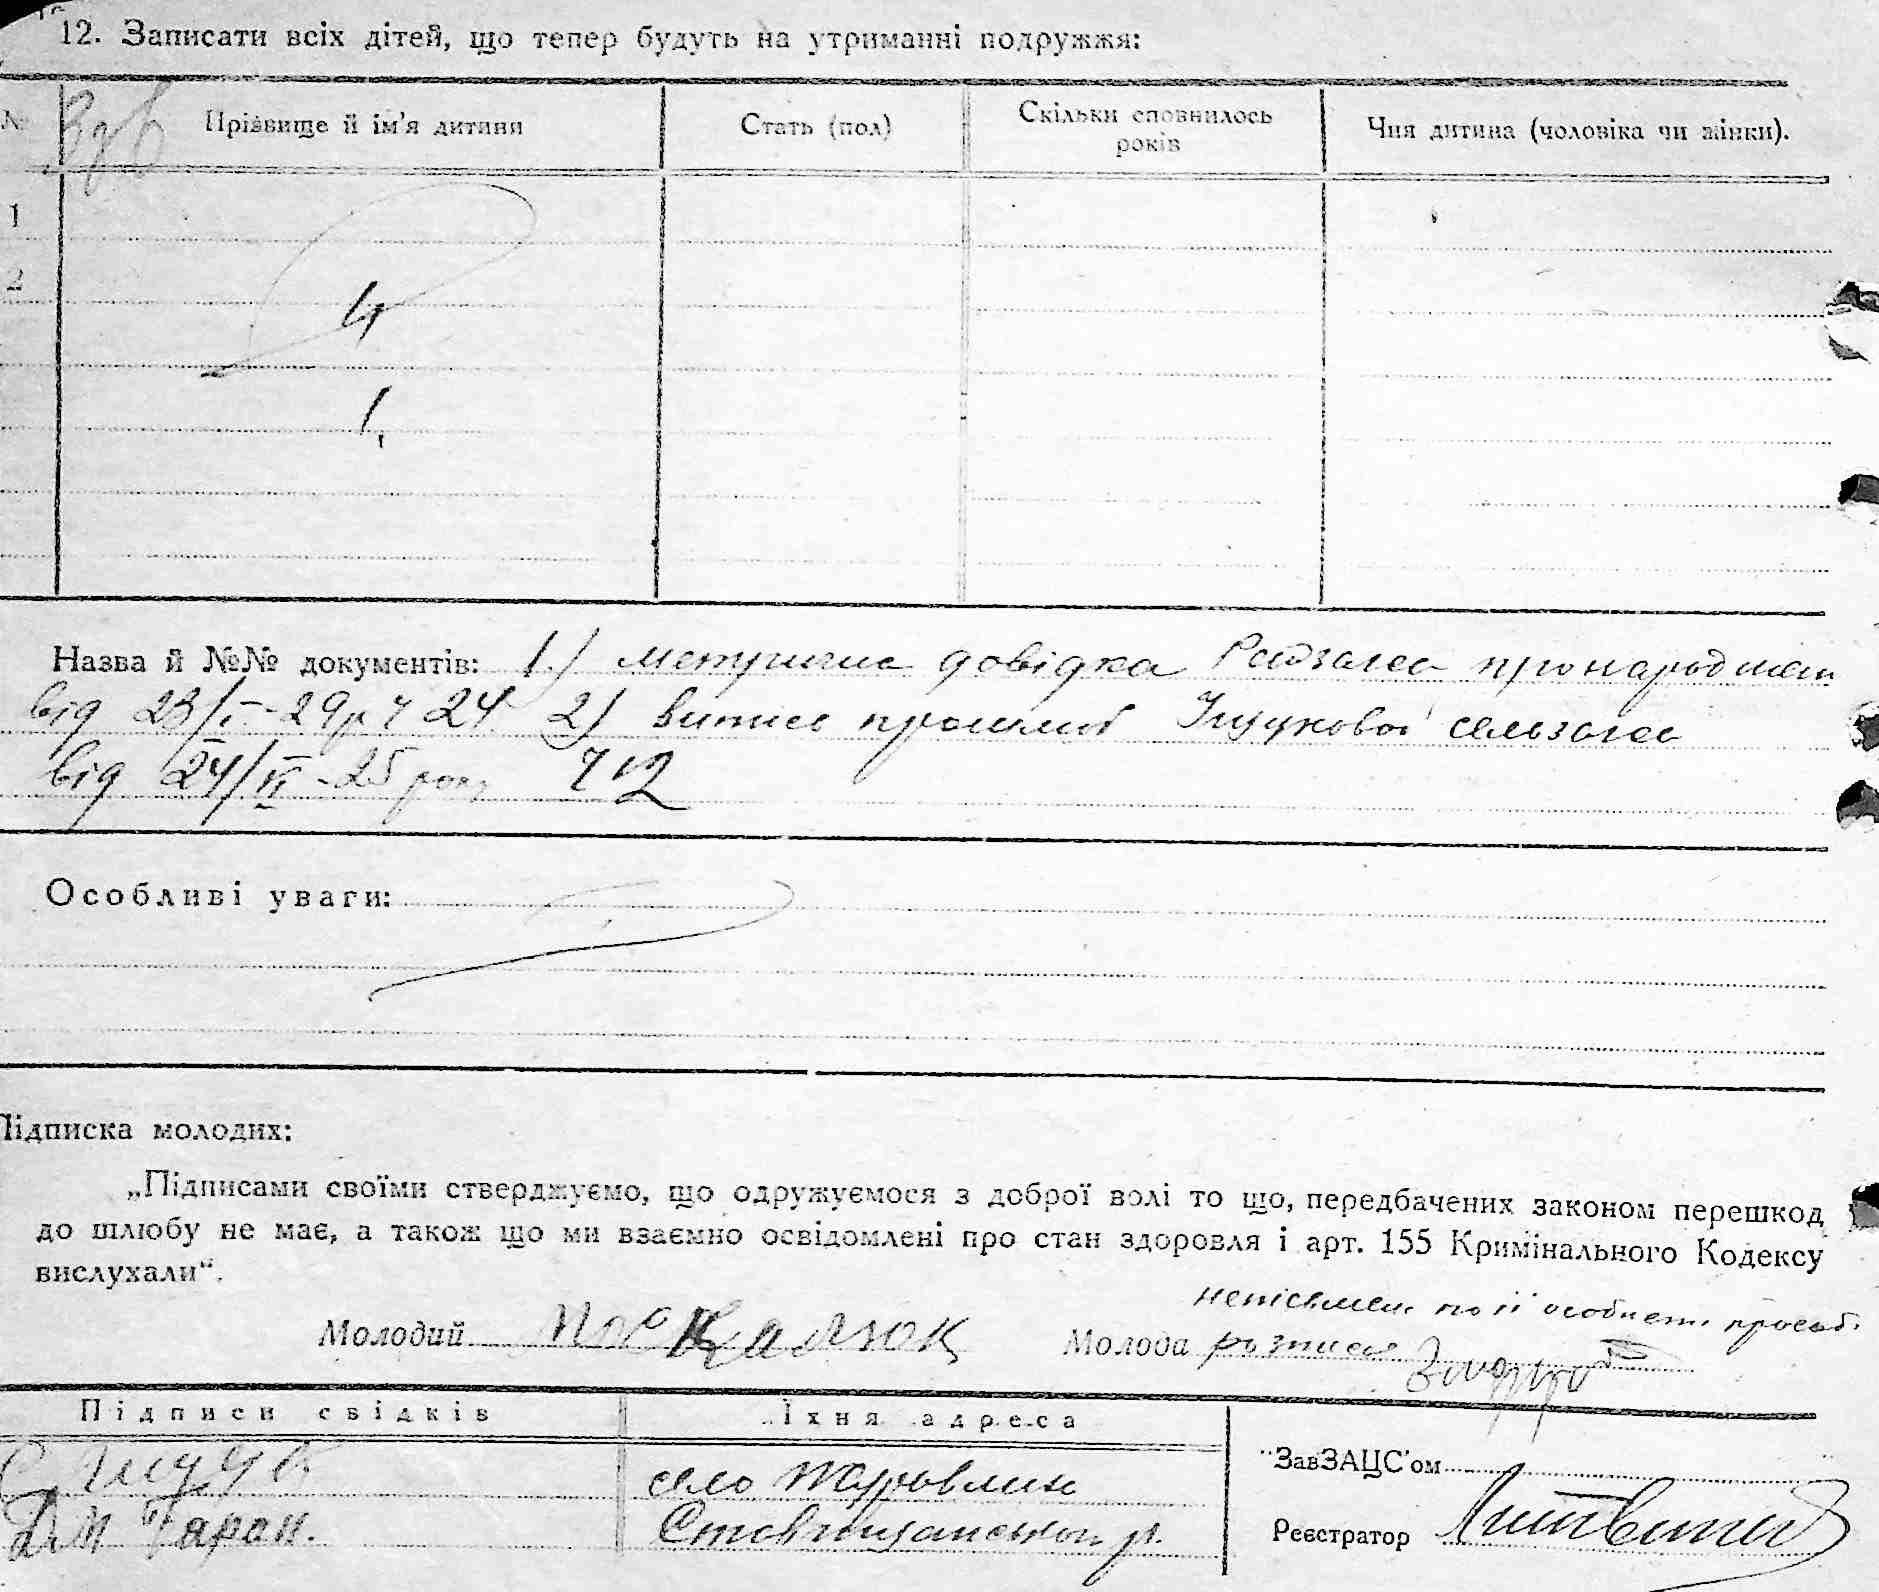 12. Записати всіх дітей, що тепер будуть на утриманні подружжя:
№ Прізвище й ім'я дитини Стать (пол) Скільки сповнилось років Чия дитина (чоловіка чи жінки).
1
2
4
1,
Назва й №№ документів: 1.) метрична довідка про народжен
від 23/I-29р ч 24 2) витис сельзагса
від 24/VI-25 року ч 12
Особливі уваги:
Підписка молодих:
„Підписами своїми стверджуємо, що одружуємося з доброї волі то що, передбачених законом перешкод
до шлюбу не має, а також що ми взаємно освідомлені про стан здоровля і арт. 155 Кримінального Кодексу
вислухали“.
неписьмен. по її особист. просьб.
Молодий Москалюк Молода розписався
Підписи свідків Їхня адреса
ЗавЗАЦС'ом
С Ищук село Журовлиха
Дм Гаран. Ставищанськ р.
Реєстратор Литвин